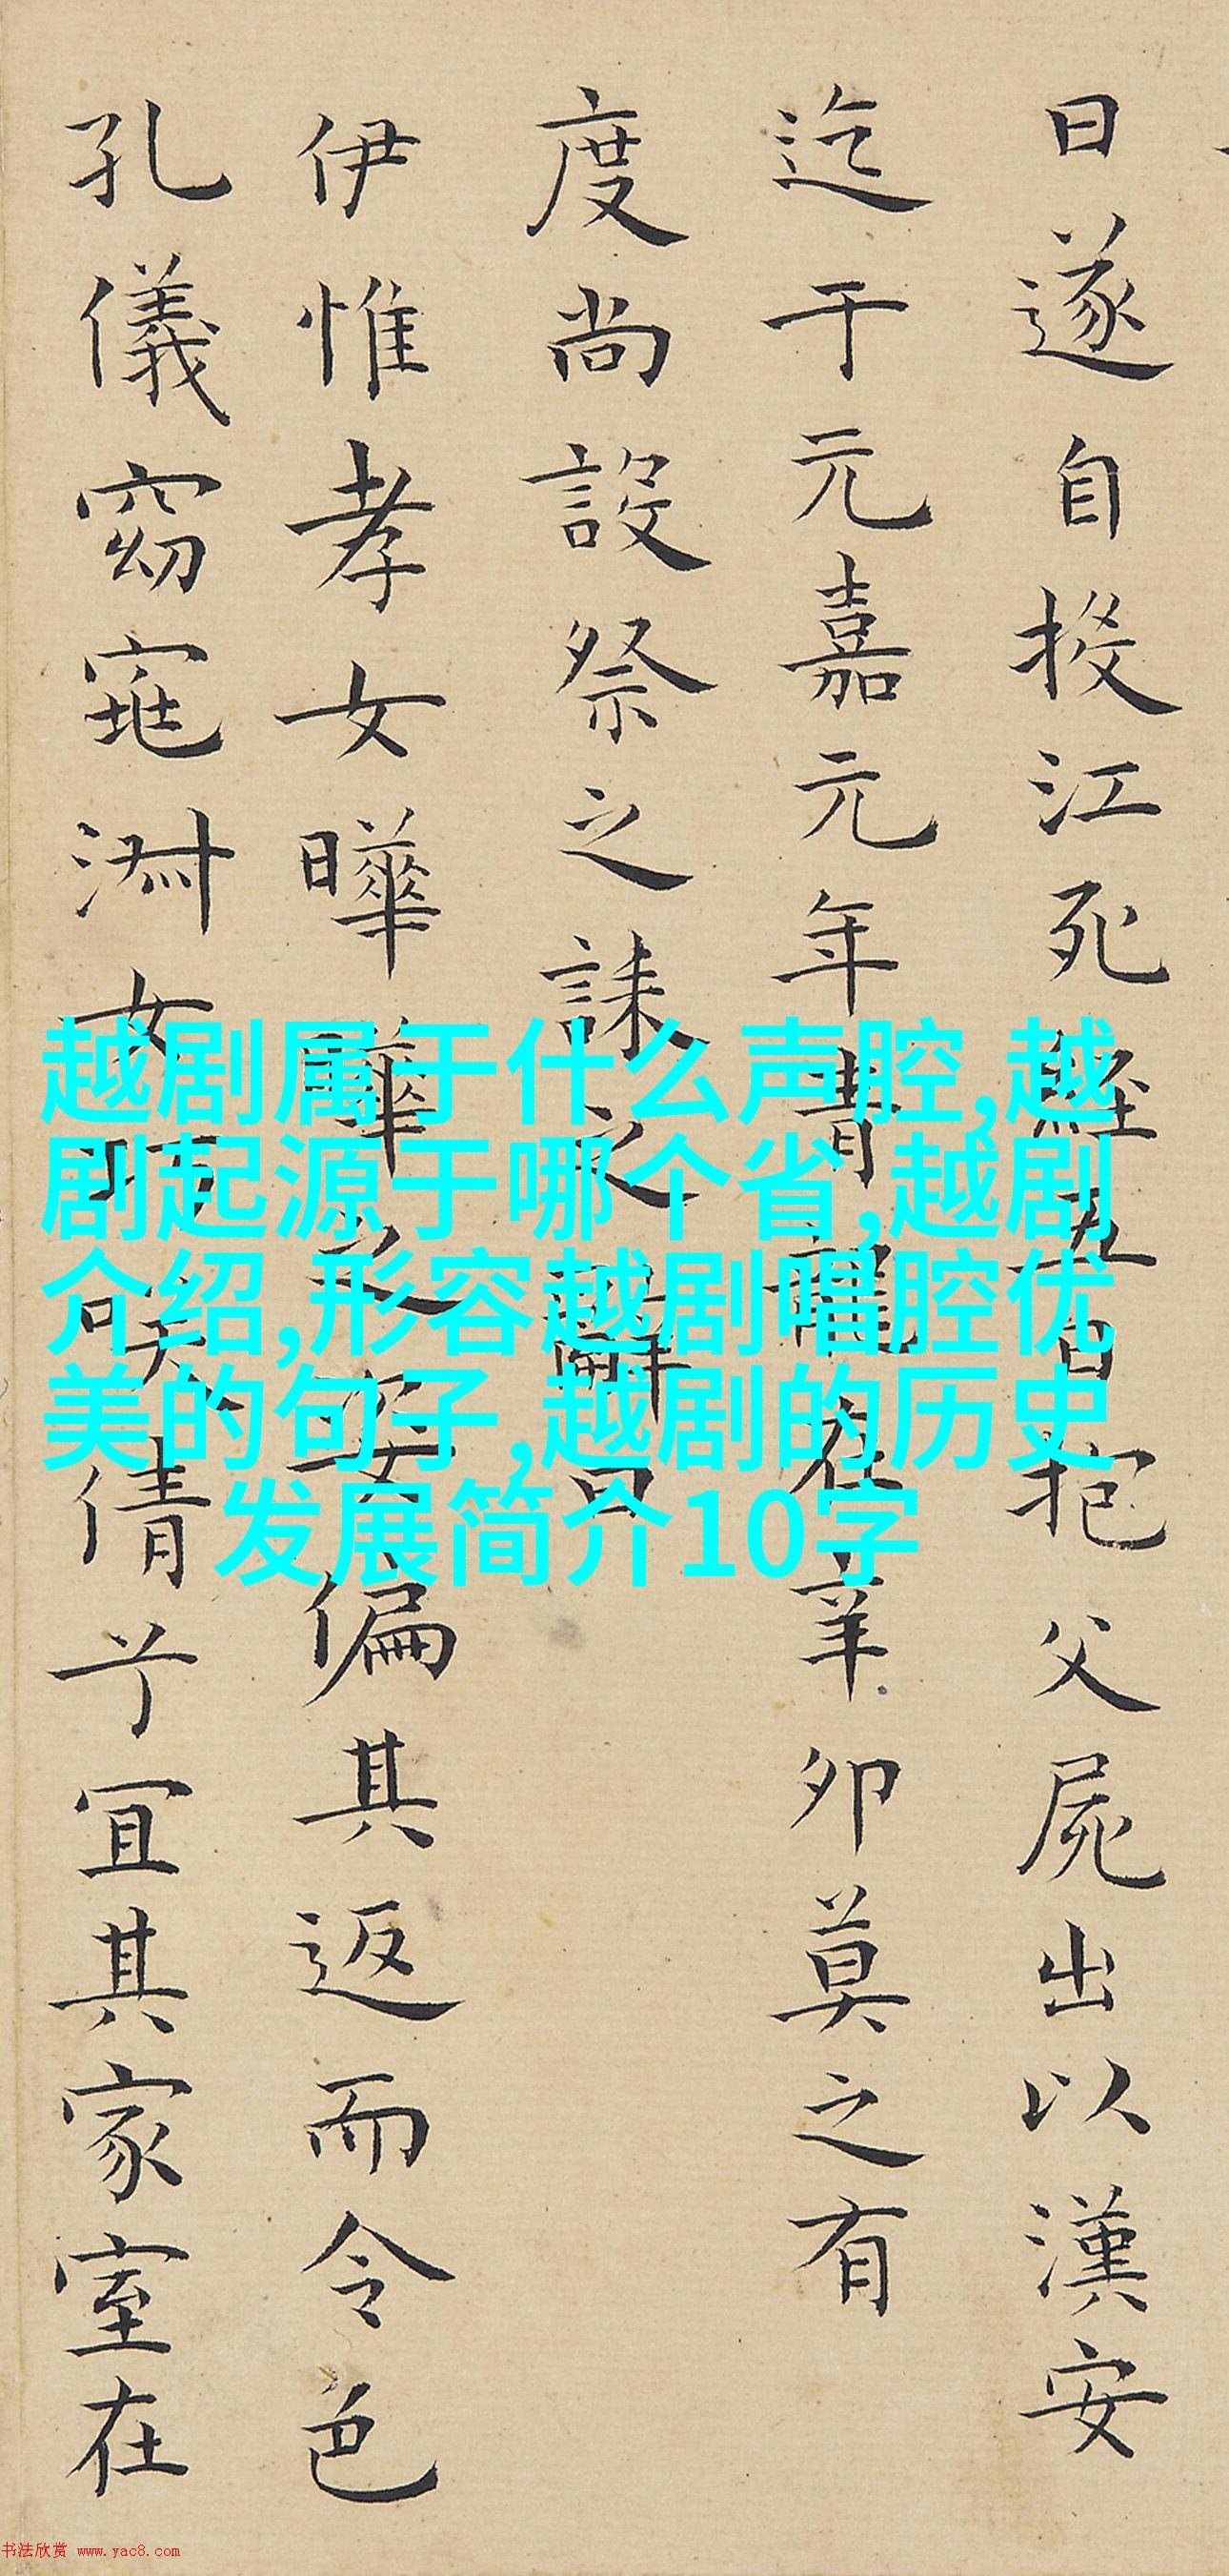 日遂自投江死經五日抱父屍出以漢安
迄于元嘉元年青龍在辛卯莫之有
度尚設祭之誄之辭曰
伊惟孝女曄曄之姿偏其返而令色
孔儀窈窕淑女巧笑倩兮宜其家室在
越剧属于什么声腔,越
剧起源于哪个省,越剧
介绍,形容越剧唱腔优
美的句子,越剧的历史
发展简介10字
书法欣赏 www.yac8.com